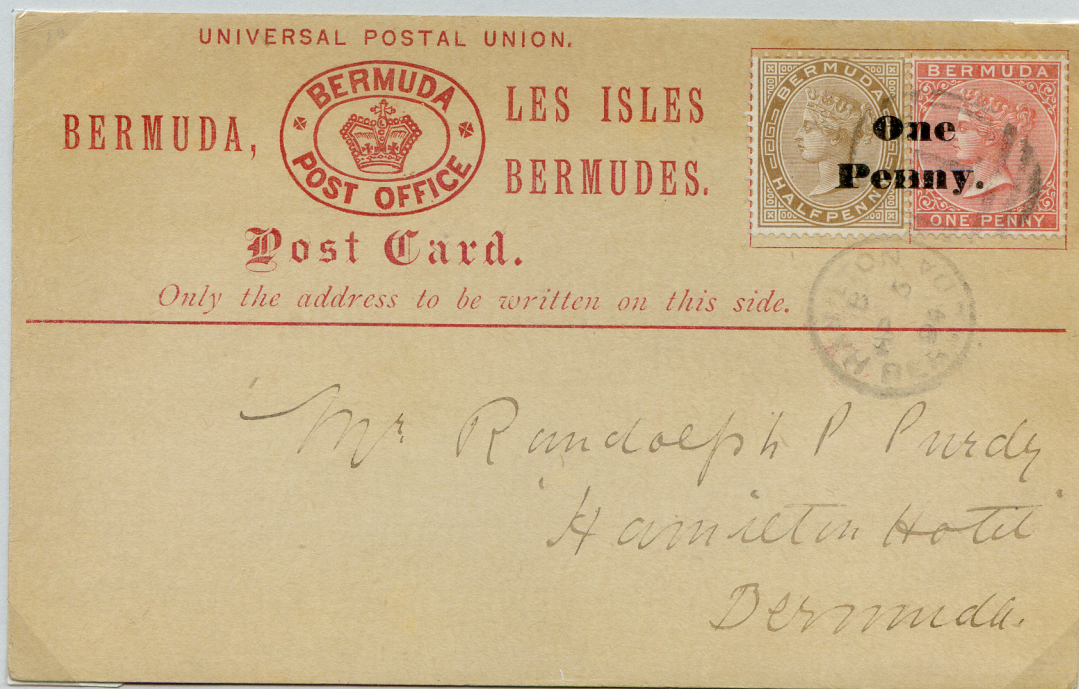 UNIVERSAL POSTAL UNION.
BERMUDA,
BERMUDA
POST OFFICE
LES ISLES
BERMUDES.
Post Card.
Only the address to be written on this side.
BERMUDA
HALFPENNY
BERMUDA
ONE PENNY
One
Penny.
Mr. Randolph P Purdy
Hamilton Hotel
Bermuda.